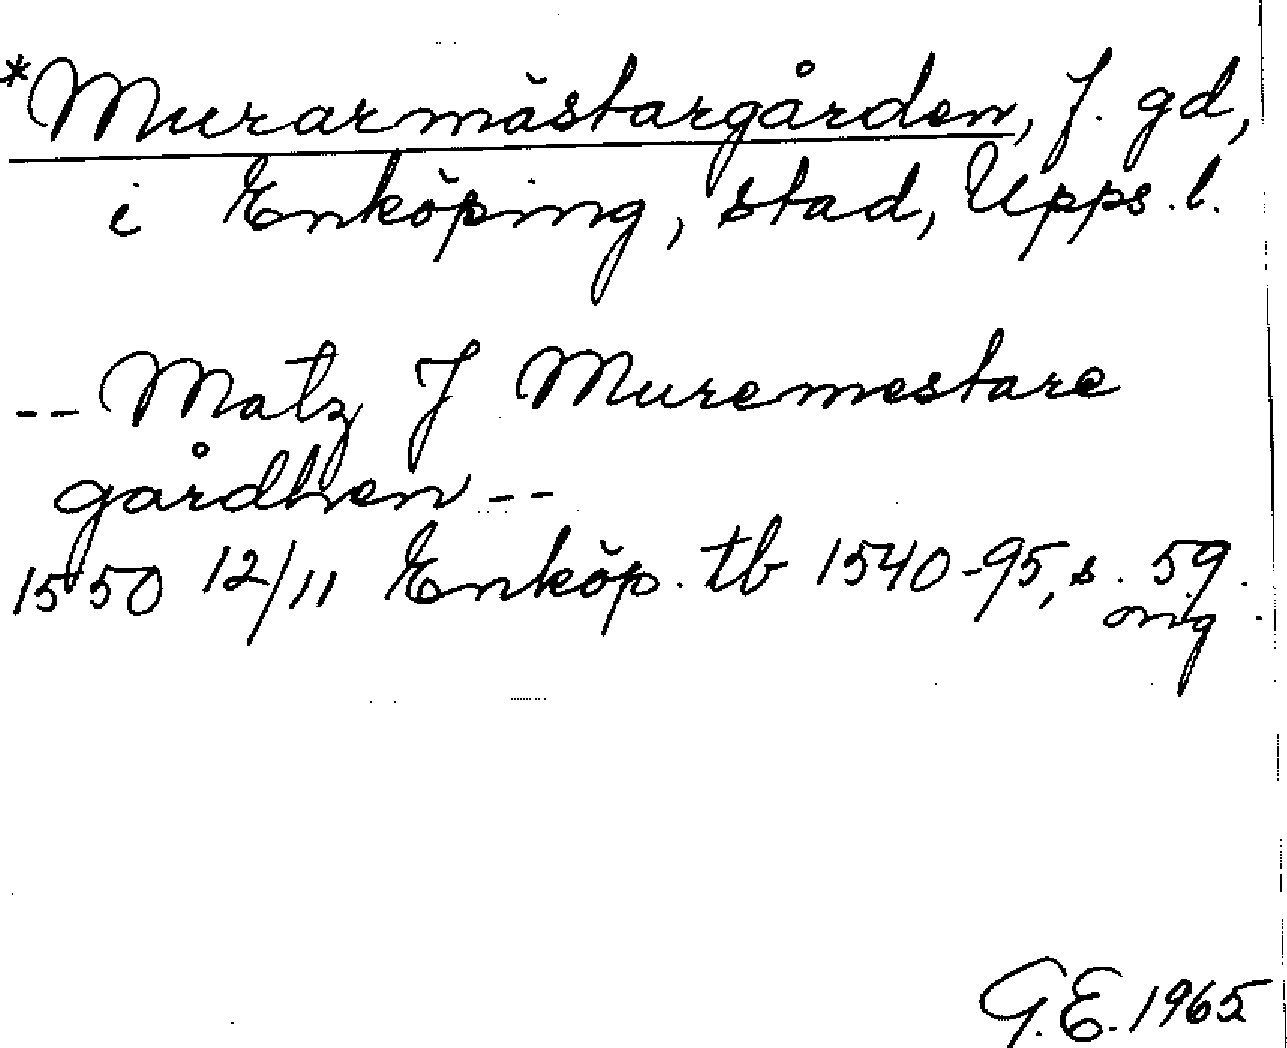 *Murarmästargården, f. gd,
i Enköping, stad, Upps. l.
-- Matz J Muremestare
gårdhen --
1550 12/11 Enköp. tb 1540-95, s. 59.
orig.
G.E. 1965